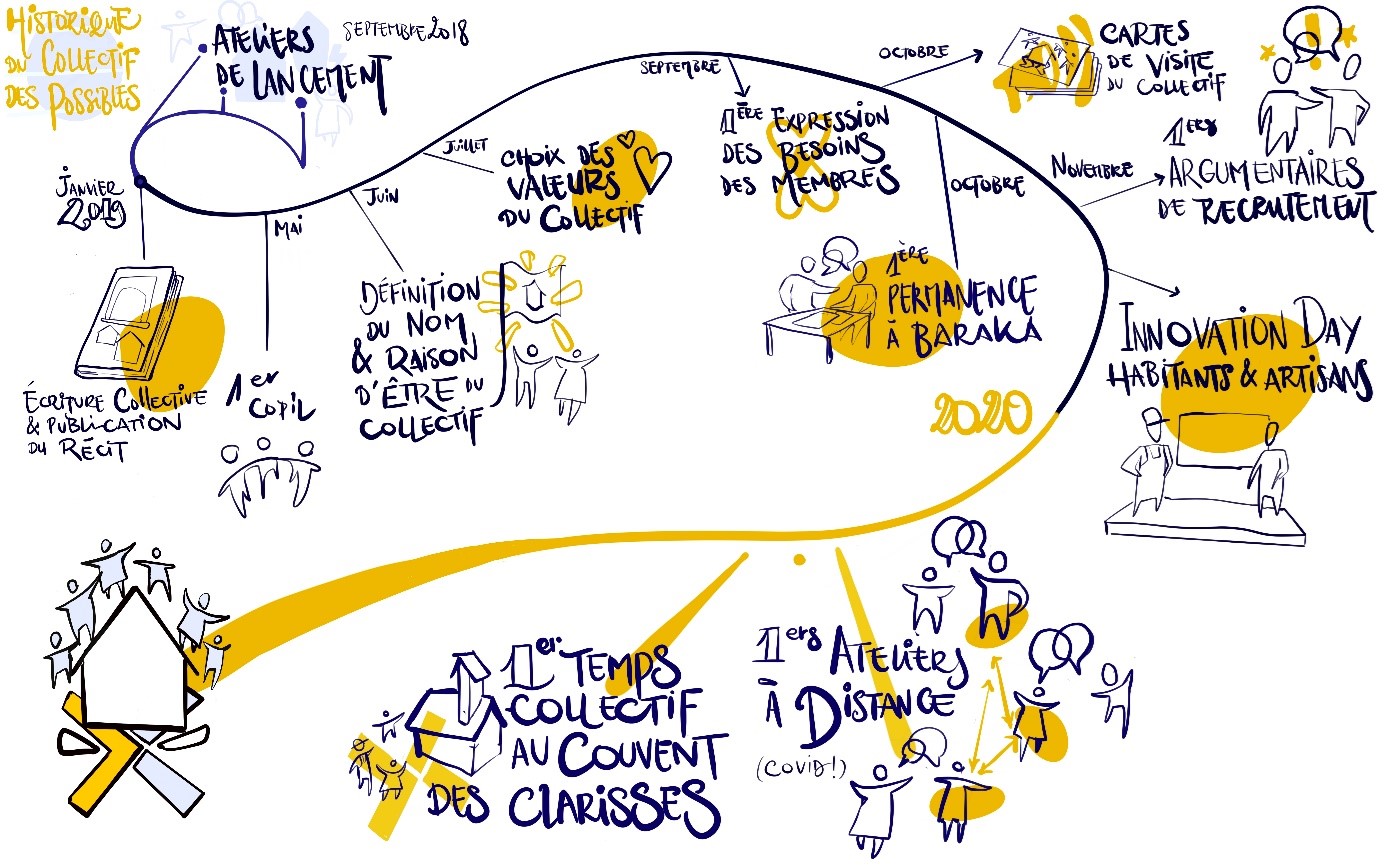 Historique
du Collectif
des Possibles
Ateliers
de Lancement
Septembre 2018
Janvier
2019
Écriture Collective
& Publication
du Récit
Mai
1er
Copil
Juin
Définition
du Nom
& Raison
d'être du
Collectif
Juillet
Choix des
Valeurs
du Collectif
Septembre
1ère Expression
des Besoins
des Membres
Octobre
Cartes
de Visite
du Collectif
Octobre
1ère
Permanence
à Baraka
Novembre
1ers
Argumentaires
de Recrutement
Innovation Day
Habitants & Artisans
2020
1er Temps
Collectif
au Couvent
des Clarisses
1ers Ateliers
à Distance
(Covid!)